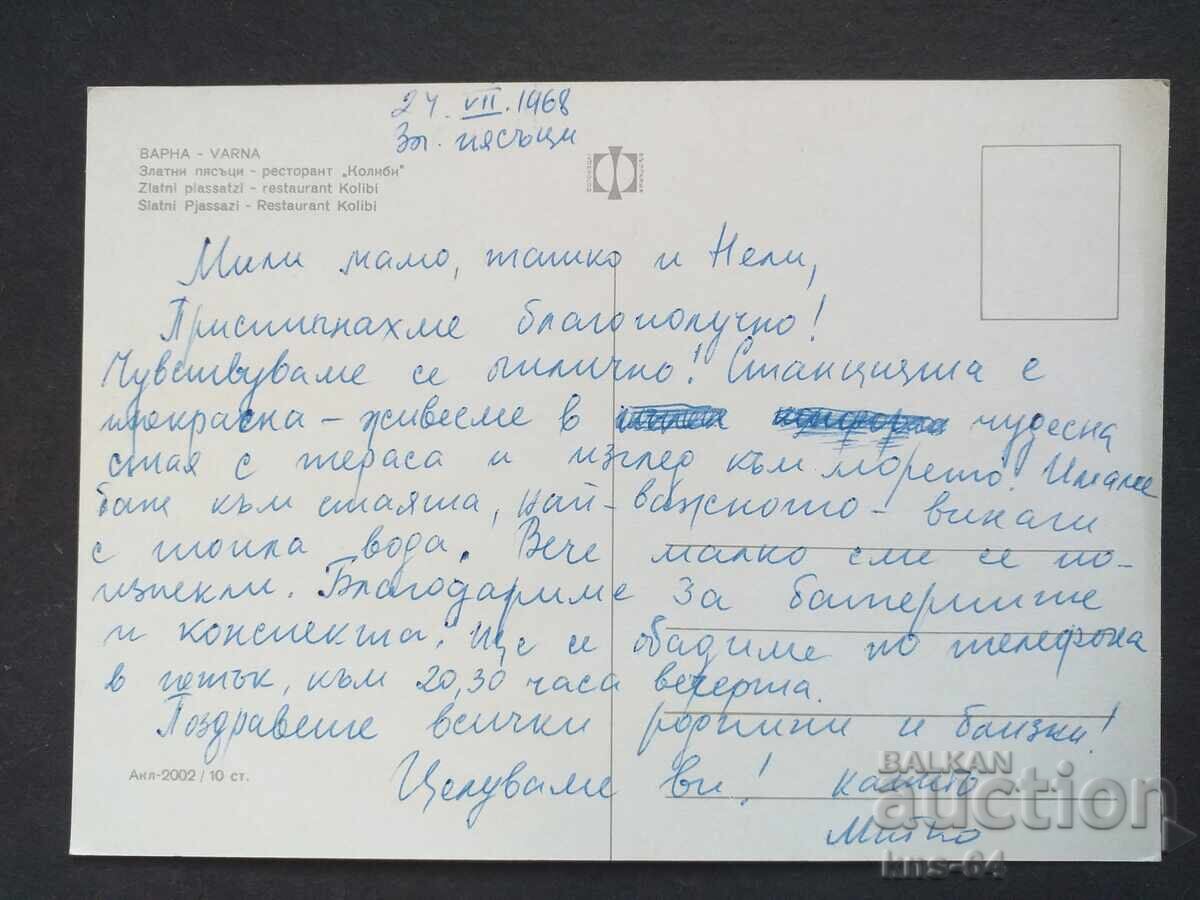 24.VII.1968
Зл. пясъци
ВАРНА - VARNA
Златни пясъци - ресторант „Колиби"
Zlatni piassatzi - restaurant Kolibi
Slatni Pjassazi - Restaurant Kolibi
Мили мамо, татко и Нели,
Пристигнахме благополучно!
Чувствуваме се отлично! Станцията е
прекрасна - живеем в чудесна
стая с тераса и изглед към морето. Имаме
баня към стаята, най-важното - винаги
с топла вода. Вече малко сме се по-
изпекли. Благодариме за батериите
и конспекта. Ще се обадиме по телефона
в петък, към 20,30 часа вечерта.
Поздравете всички роднини и близки!
Целуваме ви!
Митко
Акл-2002/10 ст.
BALKAN
auction
kns-64